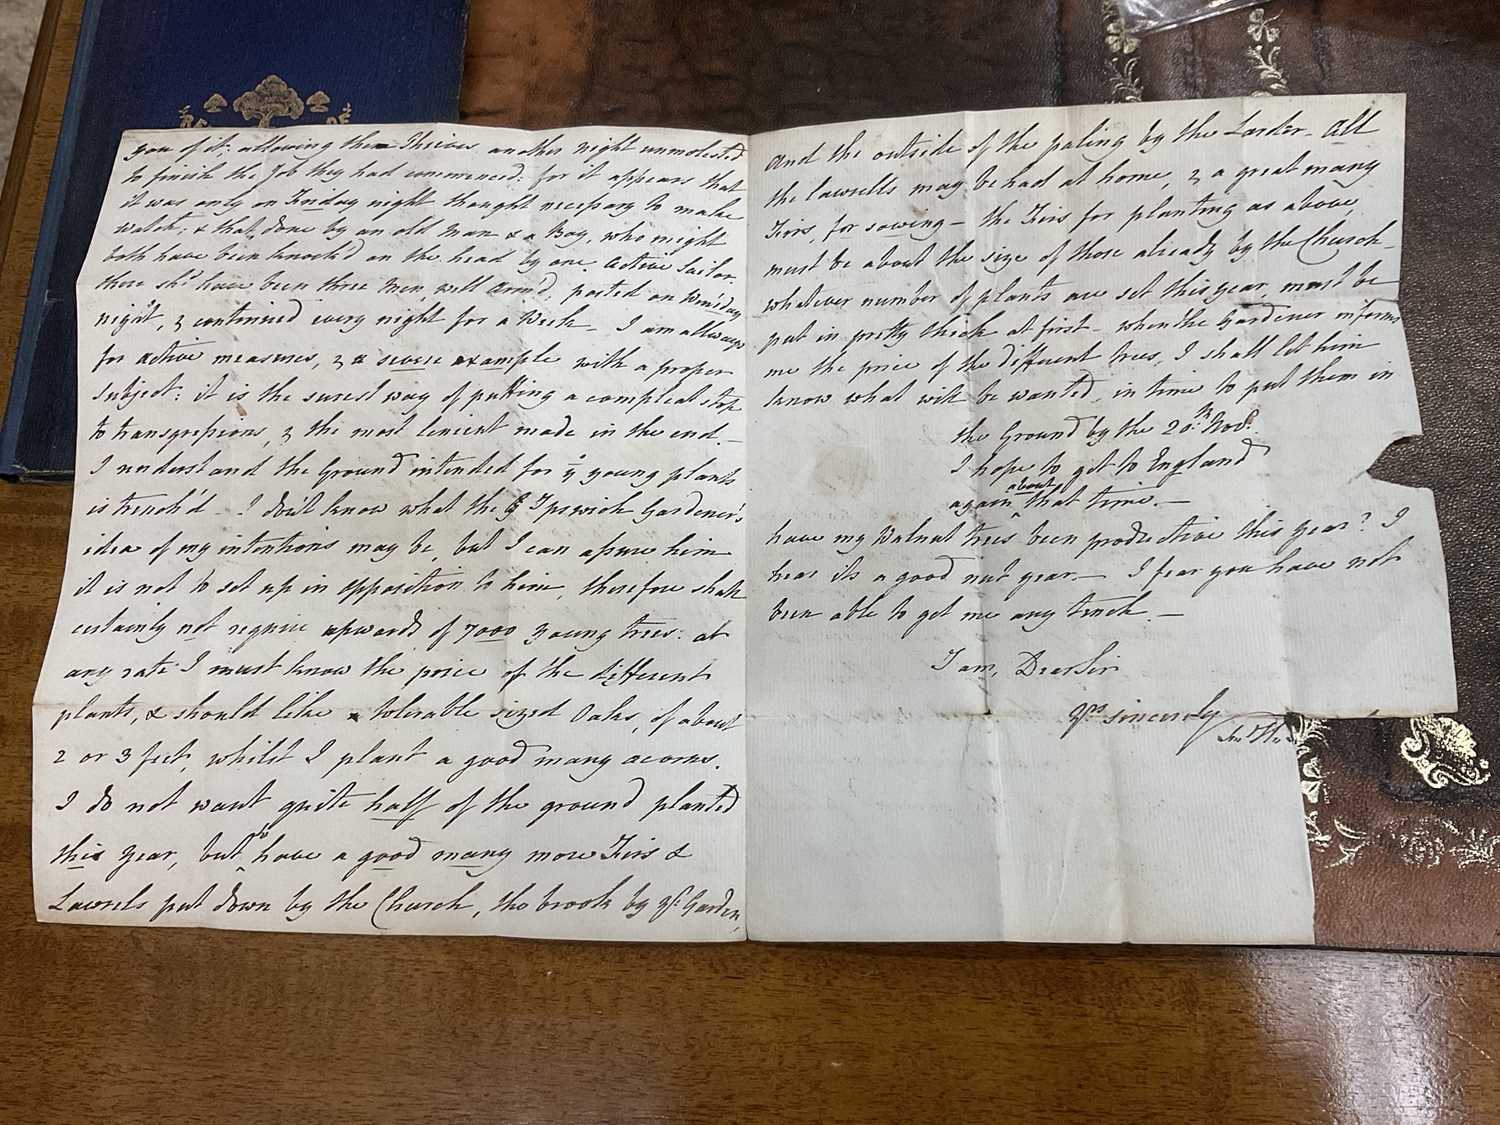 you of it; allowing them Thieves another night unmolested
to finish the Job they had commenced: for it appears that
it was only on Friday night thought necessary to make
watch; & that, done by an old Man & a Boy, who might
both have been knock'd on the head by one active Sailor.
there shd. have been three Men, well arm'd, posted on Wensday
night, & continued every night for a Week – I am allways
for active measures, & a severe example with a proper
Subject: it is the surest way of putting a compleat stop
to transgressions, & the most lenient mode in the end. –
I understand the Ground intended for ye young plants
is trench'd – I don't know what the Ipswich Gardener's
idea of my intentions may be, but I can assure him
it is not to set up in opposition to him, therefore shall
certainly not require upwards of 7000 young trees: at
any rate I must know the price of the different
plants, & should like tolerable sized Oaks, of about
2 or 3 feet, whilst I plant a good many acorns.
I do not want quite half of the ground planted
this Year, but to have a good many more Firs &
Lawrels put down by the Church, the brook by yr. Garden,
And the outside of the paling by the Larder – All
the lawrells may be had at home, & a great many
Firs, for sowing – the Firs for planting as above,
must be about the size of those already by the Church –
whatever number of plants are set this year, must be
put in pretty thick at first – when the Gardener informs
me the price of the different trees, I shall let him
know what will be wanted, in time to put them in
the Ground by the 20th. Novr.
I hope to get to England
again about that time. –
have my Walnut trees been productive this Year? I
hear its a good nut year – I fear you have not
been able to get me any tench. –
I am, Dear Sir
Yrs. sincerely